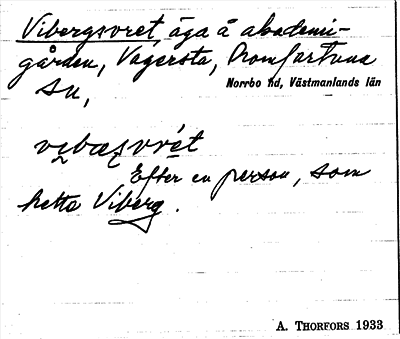 Vibergsvret, äga å akademi-
gården, Vagersta, Romfartuna
sn,
Norrbo hd, Västmanlands län
Efter en person, som
hette Viberg.
A. THORFORS 1933